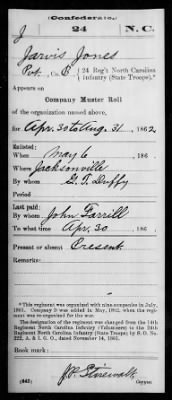 (Confederate.)
J 24 N. C.
Jarvis Jones
Pvt., Co. B, 24 Reg't North Carolina
Infantry (State Troops).*
Appears on
Company Muster Roll
of the organization named above,
for Apr. 30 to Aug. 31, 1862.
Enlisted:
When May 6, 186 .
Where Jacksonville
By whom G. T. Duffy
Period
Last paid:
By whom John Farrill
To what time Apr. 30, 186 .
Present or absent Present
Remarks:
*This regiment was organized with nine companies in July,
1861. Company B was added in May, 1862, when the regi-
ment was organized for the war.
The designation of the regiment was changed from the 14th
Regiment North Carolina Infantry (Volunteers) to the 24th
Regiment North Carolina Infantry (State Troops) by S. O. No.
222, A. & I. G. O., dated November 14, 1861.
Book mark:
(642)
Stirewalt
Copyist.